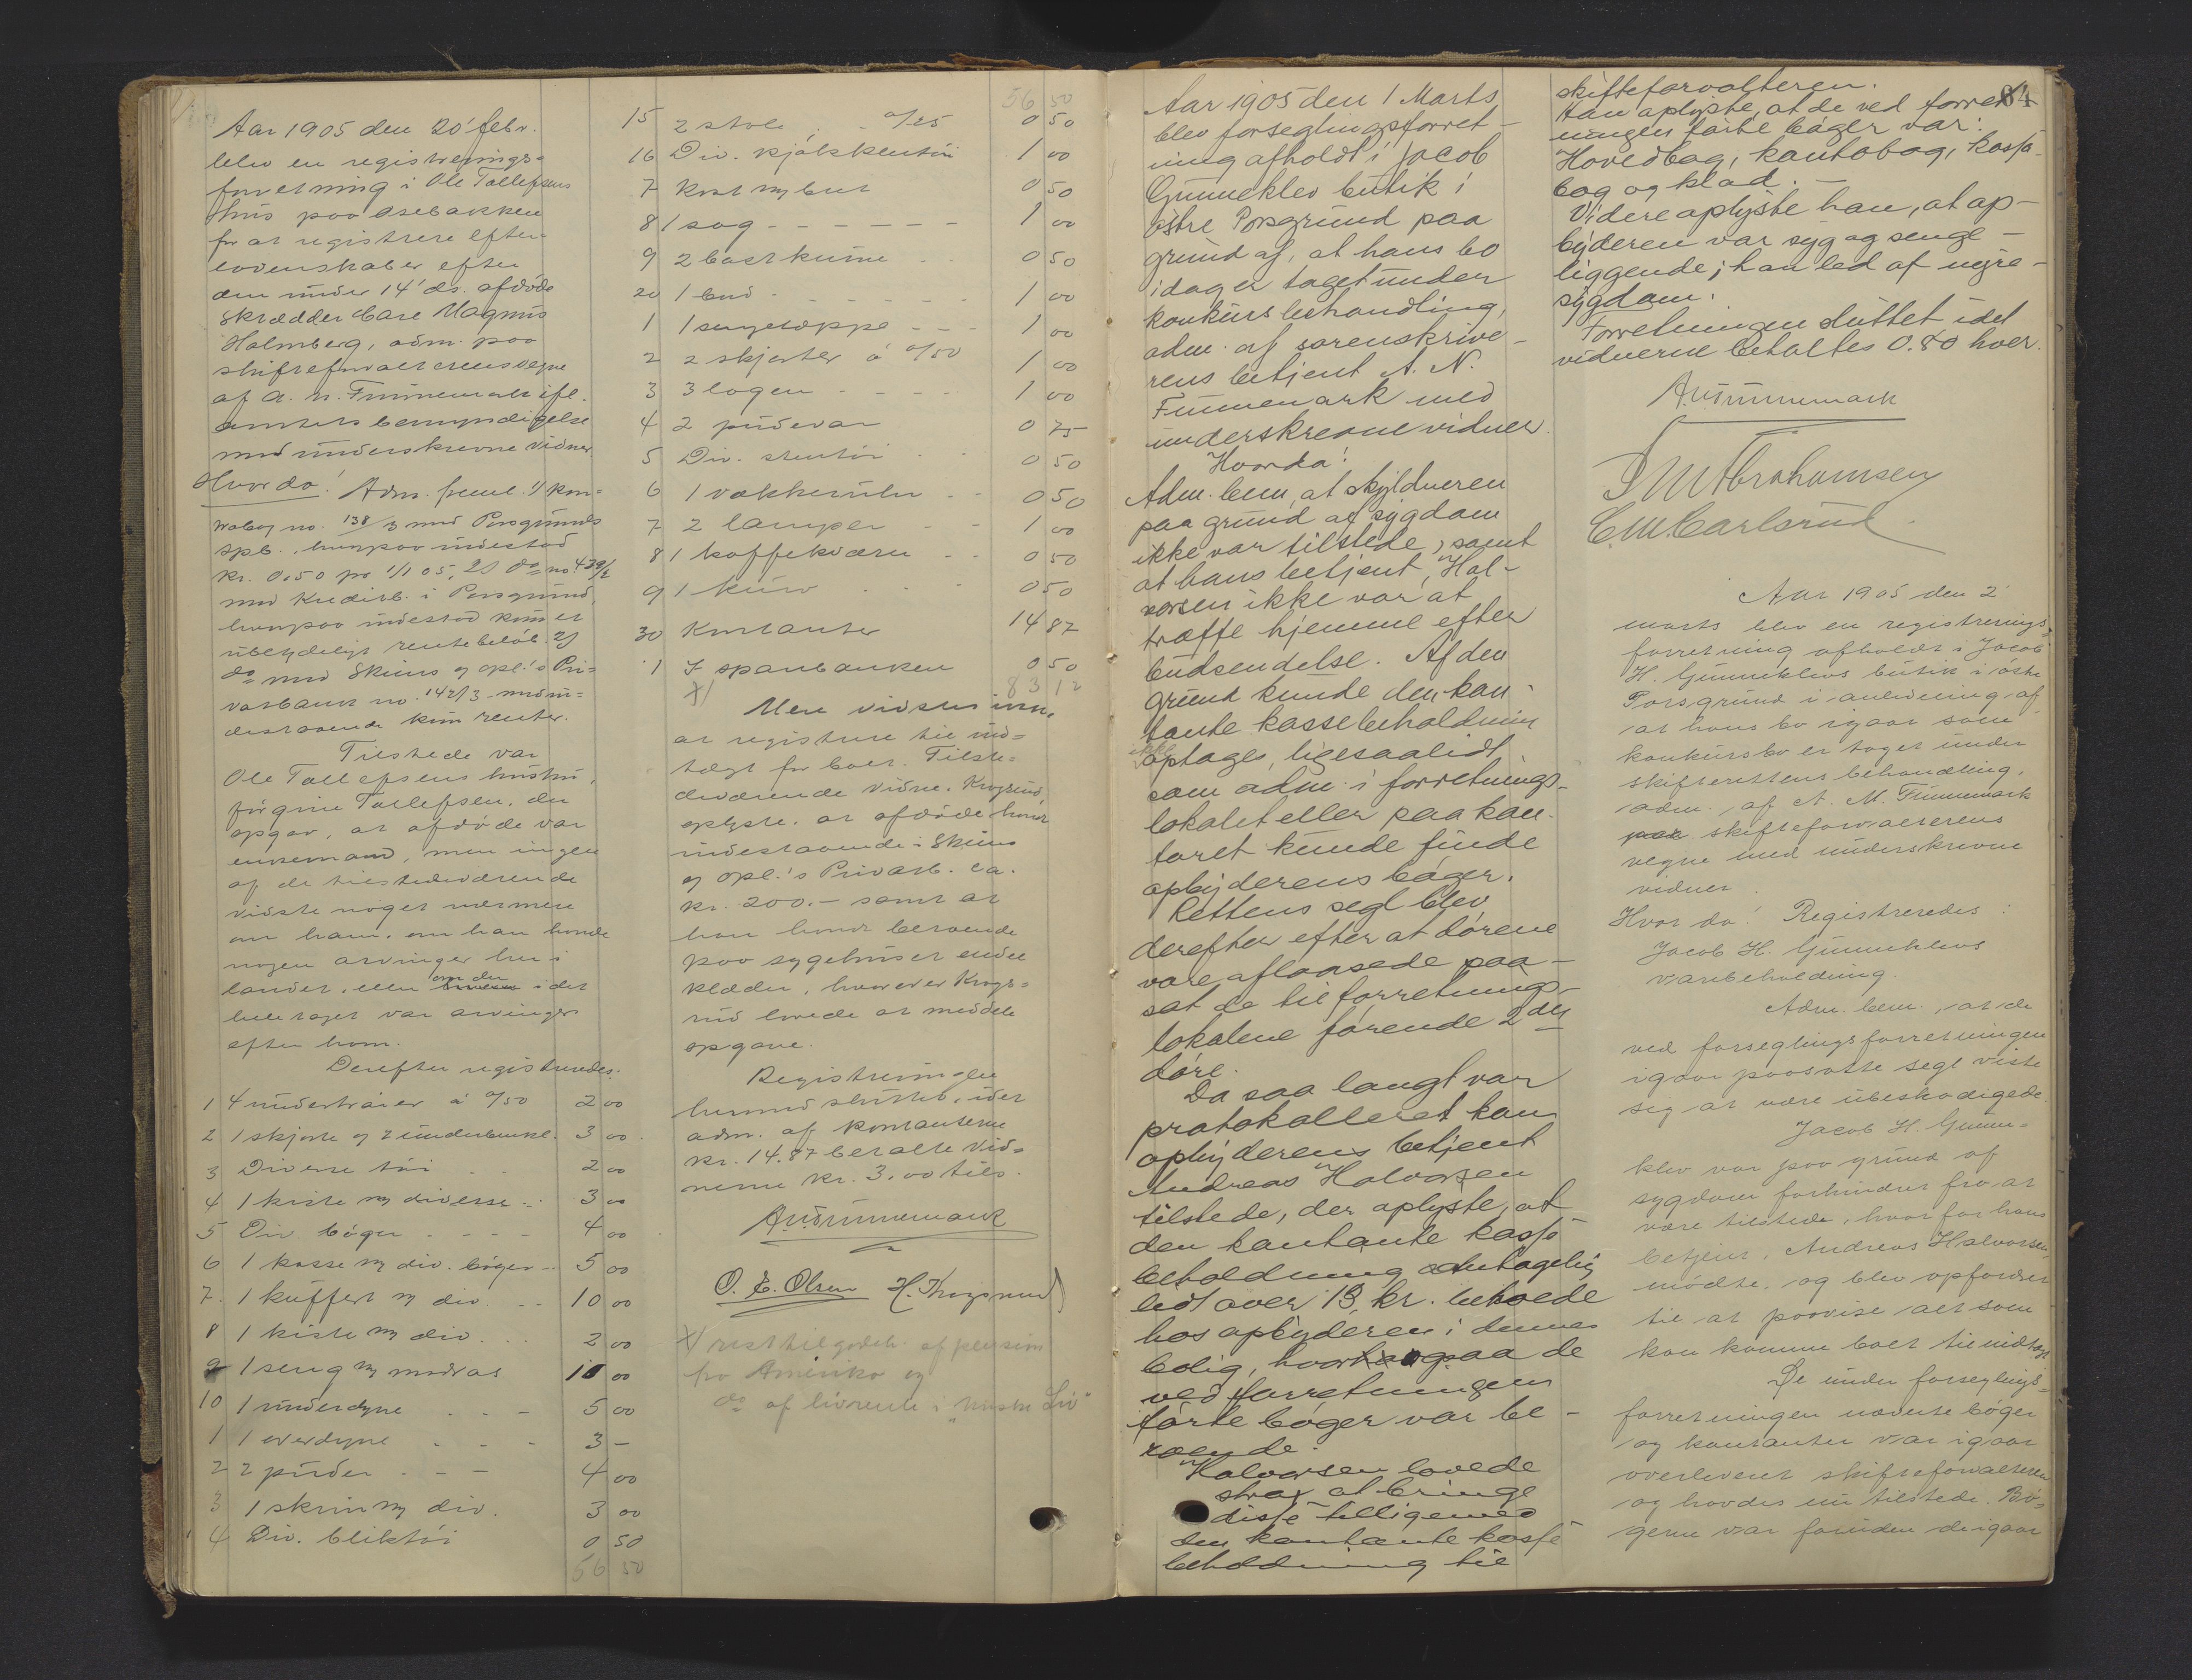 Aar 1905 den 20' febr.
blev en registrerings-
forretning i Ole Tollefsens
hus paa Osebakken
for at registrere efter-
ladenskaber efter
den under 14' ds. afdøde
skrædder Carl Magnus
Holmberg, adm. paa
skifteforvalterens vegne
af A. N. Finnemark ifl.
amtets bemyndigelse
med underskrevne vidner.
Hvorda! Adm. freml. 1) kon-
trabog no. 138/3 med Porsgrunds
spb. hvorpaa indestod
kr. 0,50 pr 1/1 05, 2) do no 439/2
med Kreditb. i Porsgrund,
hvorpaa indestod kun et
ubetydeligt rentebeløb 3)
do med Skiens og opl.'s Pri-
vatbank no. 142/3 med in-
destaaende kun renter.
Tilstede var
Ole Tollefsens hustru,
Jørgine Tollefsen, der
opgav, at afdøde var
enkemand, men ingen
af de tilstedeværende
vidste noget nærmere
om ham, om han havde
nogen arvinger her i
landet, eller om der i det
hele taget var arvinger
efter ham.
Derefter registreredes:
1 4 undertrøier á 0/50 2 00
2 1 skjorte og 2 underbenkl. 3 00
3 Diverse tøi - - 2 00
4 1 kiste m diverse - 3 00
5 Div bøger - - - - 4 00
6 1 kasse m div. bøger - 5 00
7 1 kuffert m div. - - 10 00
8 1 kiste m div. . . 2 00
9 1 seng m madras 10 00
10 1 underdyne - - - 5 00
1 1 overdyne - - - 3 -
2 2 puder - - - 4 00
3 1 skrin m div. 3 00
4 Div. bliktøi 0 50
56 50
56 50
15 2 stole - - 0/25 0 50
16 Div. kjøkkentøi 1 00
7 Kost m bret 0 50
8 1 sag - - - - - - 1 00
9 2 bastkurve - - 0 50
20 1 bord - - - - - - 1 00
1 1 sengetæppe - - - 1 00
2 2 skjorter á 0/50 1 00
3 3 lagen - - - - 1 00
4 2 pudevar 0 75
5 Div. stentøi - - 0 50
6 1 vækkerur - - 0 50
7 2 lamper - - 1 00
8 1 kaffekværn - - 0 50
9 1 kurv - - 0 50
30 Kontanter 14 87
1 I sparebanken 0 50
x/ 83 12
Mere vidstes ikke
at registrere til ind-
tægt for boet. Tilste-
deværende vidne, Krogsrud,
oplyste, at afdøde havde
indestaaende i Skiens
og opl.'s Privatb. ca.
kr. 200.- samt at
han havde beroende
paa sygehuset endel
klæder, hvorover Krogs-
rud lovede at meddele
opgave.
Registreringen
hermed sluttet, idet
adm. af kontanterne
kr. 14.87 betalte vid-
nerne kr. 3.00 tils.
A.N.Finnemark
O. E. Olsen H. Krogsrud
x/ rest tilgodeh. af pension
fra Amerika og
do af livrente i "norske Liv"
Aar 1905 den 1 Marts
blev forseglingsforret-
ning afholdt i Jacob
Gunneklev butik i
østre Porsgrund paa
grund af, at hans bo
idag er taget under
konkursbehandling,
adm. af sorenskrive-
rens betjent A. N.
Finnemark med
underskrevne vidner.
Hvorda!
Adm. bem, at skyldneren
paa grund af sygdom
ikke var tilstede, samt
at hans betjent, Hal-
vorsen ikke var at
træffe hjemme efter
budsendelse. Af den
grund kunde den kon-
tante kassebeholdning
ikke optages, ligesaalidt
som adm. i forretnings-
lokalet eller paa kon-
toret kunde finde
opbyderens bøger.
Rettens segl blev
derefter efter at dørene
vare aflaasede paa-
sat de til forretnings-
lokalene førende 2 den
døre.
Da saa langt var
protokolleret kom
opbyderens betjent
Andreas Halvorsen
tilstede, der oplyste, at
den kontante kasse
beholdning antagelig
lidt over 13 kr. beroede
hos opbyderen i dennes
bolig, hvor ogsaa de
ved forretningen
førte bøger var be-
roende.
Halvorsen lovede
strax at bringe
disse tilligemed
den kontante kasse
beholdning til
84
skifteforvalteren.
Han oplyste, at de ved forret-
ningen førte bøger var:
Hovedbog, kontobog, kasse-
bog og klad. -
Videre oplyste han, at op-
byderen var syg og senge-
liggende; han led af nyre-
sygdom.
Forretningen sluttet idet
vidnerne betaltes 0.80 hver.
A.N.Finnemark
S M Abrahamsen
C.M.Carlsrud.
Aar 1905 den 2'
marts blev en registrerings-
forretning afholdt i Jacob
H. Gunneklevs butik i østre
Porsgrund i anledning af
at hans bo igaar som
konkursbo er taget under
skifterettens behandling,
adm. af A. M. Finnemark
paa skifteforvalterens
vegne med underskrevne
vidner.
Hvor da! Registreredes:
Jacob H. Gunneklevs
varebeholdning.
Adm. bem., at de
ved forseglingsforretningen
igaar paasatte segl viste
sig at være ubeskadigede.
Jacob H. Gunne-
klev var paa grund af
sygdom forhindret fra at
være tilstede, hvorfor hans
betjent, Andreas Halvorsen
mødte, og blev opfordret
til at paavise alt som
kan komme boet til indtægt
De under forseglings-
forretningen nævnte bøger
og kontanter var igaar
overleveret skifteforvalteren
og havdes nu tilstede. Bø-
gerne var foruden de igaar